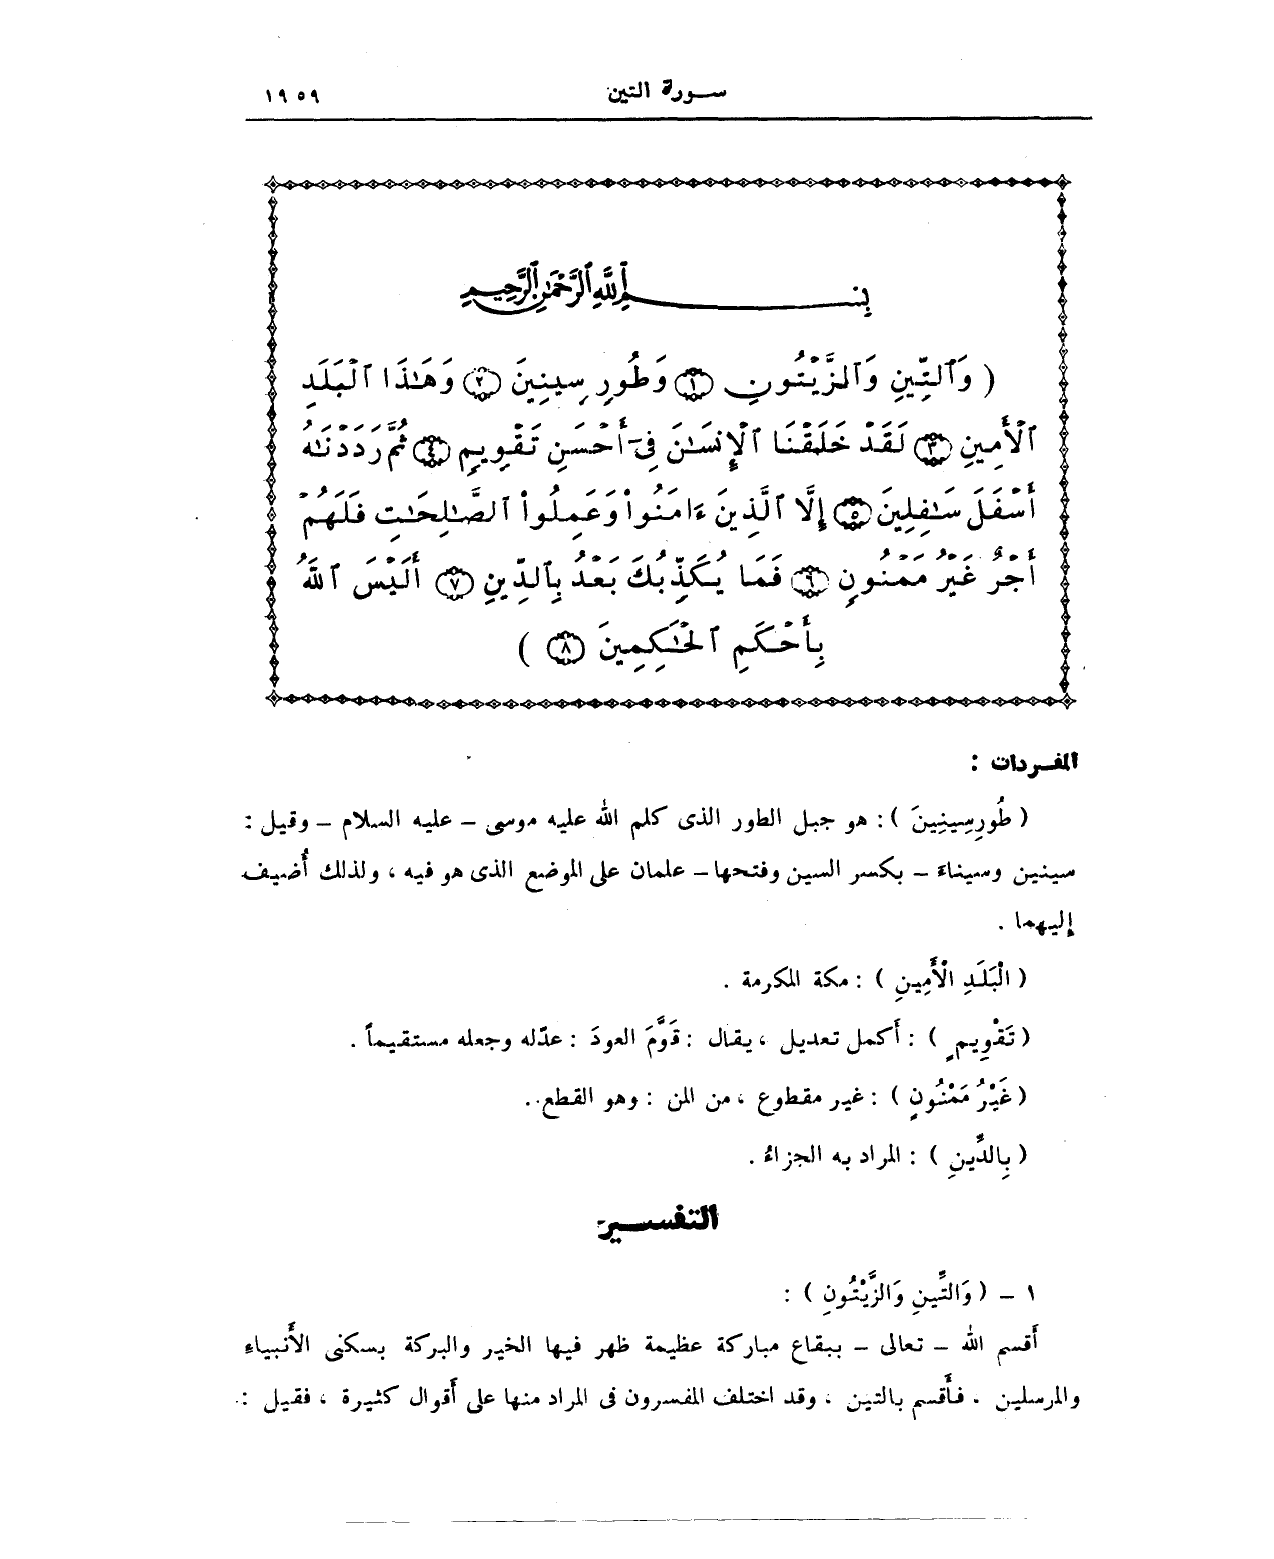 سورة التين ١٩٥٩
بِسْمِ ٱللَّهِ ٱلرَّحْمَٰنِ ٱلرَّحِيمِ
( وَٱلتِّينِ وَٱلزَّيْتُونِ ١ وَطُورِ سِينِينَ ٢ وَهَٰذَا ٱلْبَلَدِ
ٱلْأَمِينِ ٣ لَقَدْ خَلَقْنَا ٱلْإِنسَٰنَ فِىٓ أَحْسَنِ تَقْوِيمٍ ٤ ثُمَّ رَدَدْنَٰهُ
أَسْفَلَ سَٰفِلِينَ ٥ إِلَّا ٱلَّذِينَ ءَامَنُوا۟ وَعَمِلُوا۟ ٱلصَّٰلِحَٰتِ فَلَهُمْ
أَجْرٌ غَيْرُ مَمْنُونٍ ٦ فَمَا يُكَذِّبُكَ بَعْدُ بِٱلدِّينِ ٧ أَلَيْسَ ٱللَّهُ
بِأَحْكَمِ ٱلْحَٰكِمِينَ ٨ )
المفردات :
( طُورِ سِينِينَ ) : هو جبل الطور الذى كلم الله عليه موسى – عليه السلام – وقيل :
سينين وسيناءَ – بكسر السين وفتحها – علمان على الموضع الذى هو فيه ، ولذلك أُضيف
إليهما .
( الْبَلَدِ الْأَمِينِ ) : مكة المكرمة .
( تَقْوِيمٍ ) : أَكمل تعديل ، يقال : قَوَّمَ العودَ : عدّله وجعله مستقيماً .
( غَيْرُ مَمْنُونٍ ) : غير مقطوع ، من المن : وهو القطع .
( بِالدِّينِ ) : المراد به الجزاءُ .
التفسير
١ – ( وَالتِّينِ وَالزَّيْتُونِ ) :
أَقسم الله – تعالى – ببقاع مباركة عظيمة ظهر فيها الخير والبركة بسكنى الأَنبياءِ
والمرسلين ، فأَقسم بالتين ، وقد اختلف المفسرون فى المراد منها على أَقوال كثيرة ، فقيل :